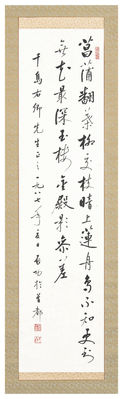 菖蒲翻葉柳交枝暗上蓮舟鳥不知更到
無花最深玉樓金殿影參差
千鳥右卿先生正之一九八七年五月啟功於首都